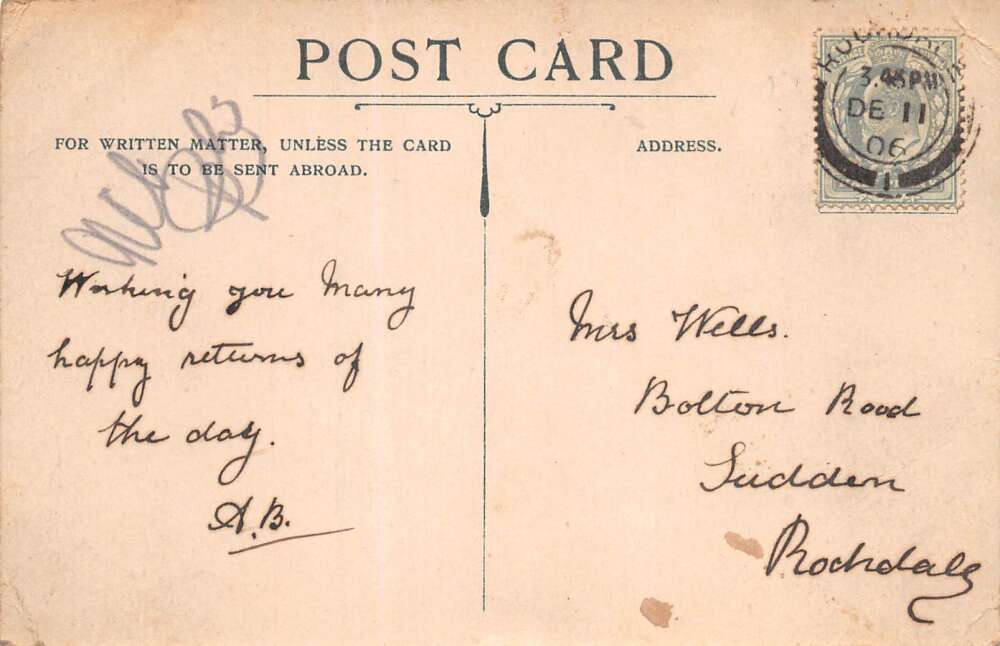 POST CARD
FOR WRITTEN MATTER, UNLESS THE CARD
IS TO BE SENT ABROAD.
ADDRESS.
ROCHDALE
3.45PM
DE 11
06
1
you Many
happy returns of
the day.
A.B.
Mrs Wells.
Bolton Road
Sudden
Rochdale